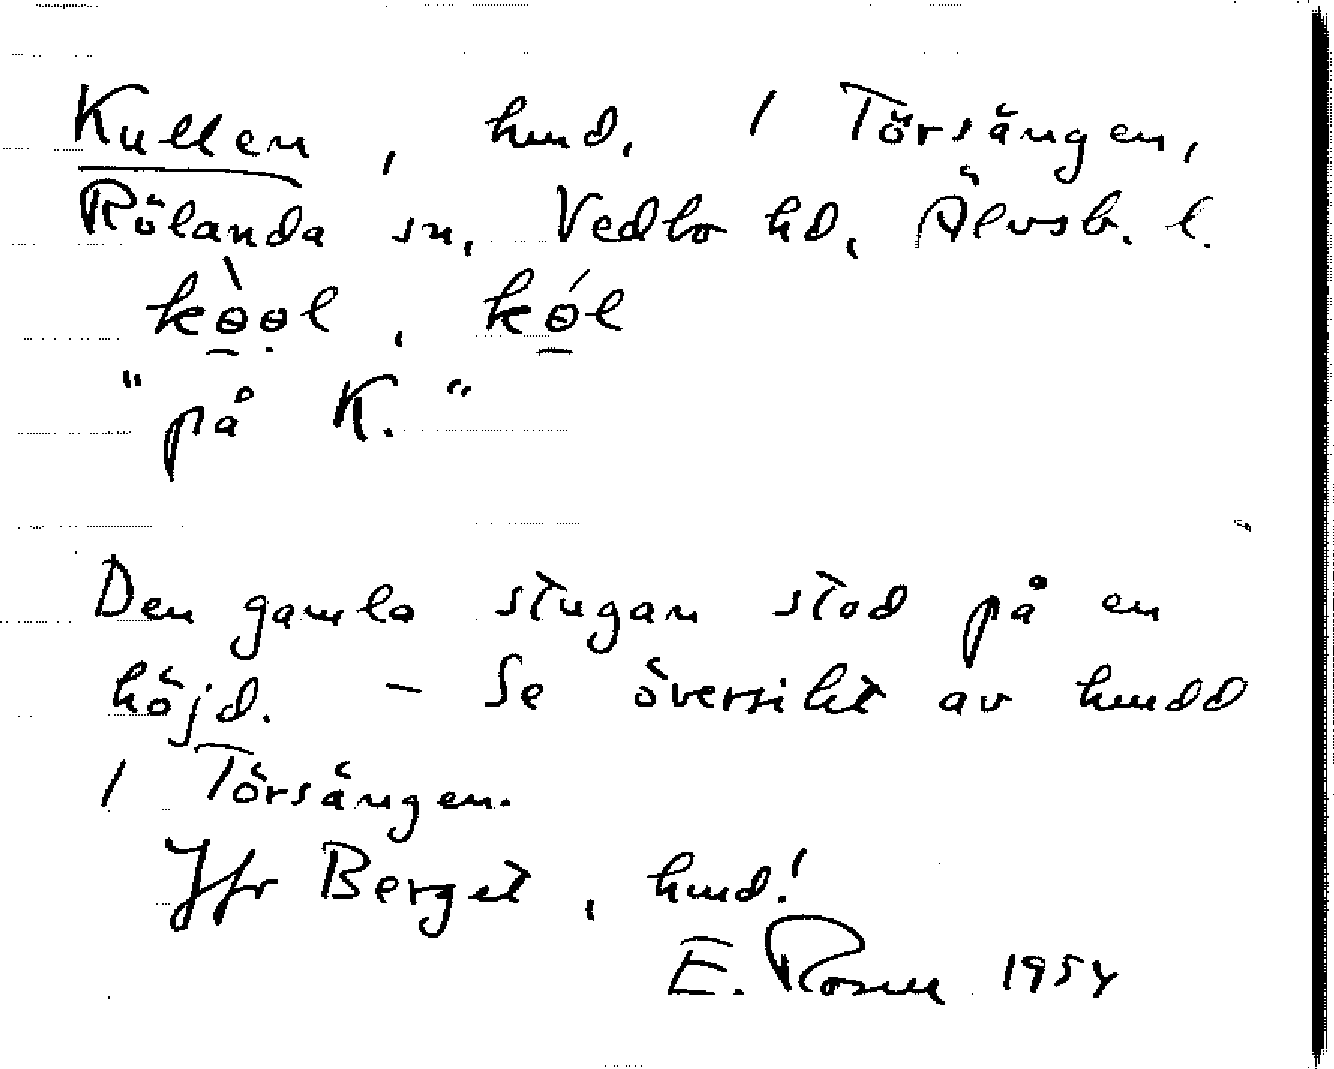 Kullen, hmd, i Törsängen,
Rölanda sn, Vedbo hd, Älvsb. l.
kòọl, kól
"på K."
Den gamla stugan stod på en
höjd. - Se översikt av hmdd
i Törsängen.
Jfr Berget, hmd!
E. Rosell 1954